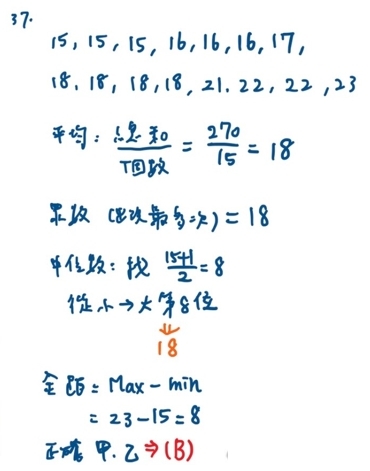 37.
15, 15, 15, 16, 16, 16, 17,
18, 18, 18, 18, 21, 22, 22, 23
平均: 總和/個數 = 270/15 = 18
眾數 (出次最多次) = 18
中位數: 找 15+1/2 = 8
從小→大第8位
⇓
18
全距 = Max - min
= 23-15 = 8
正確 甲.乙⇒(B)